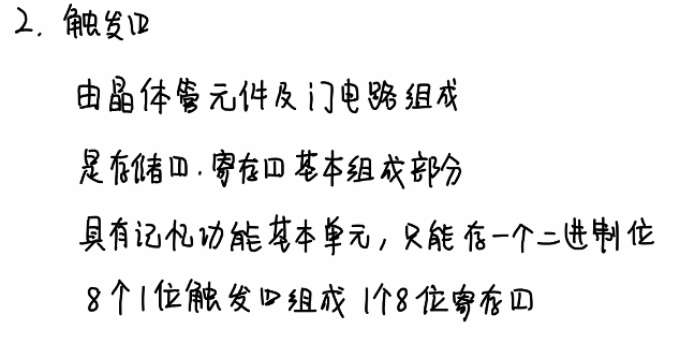 2. 触发四
由晶体管元件及门电路组成
是存储四.寄存四基本组成部分
具有记忆功能基本单元,只能存一个二进制位
8个1位触发四组成 1个8位寄存四